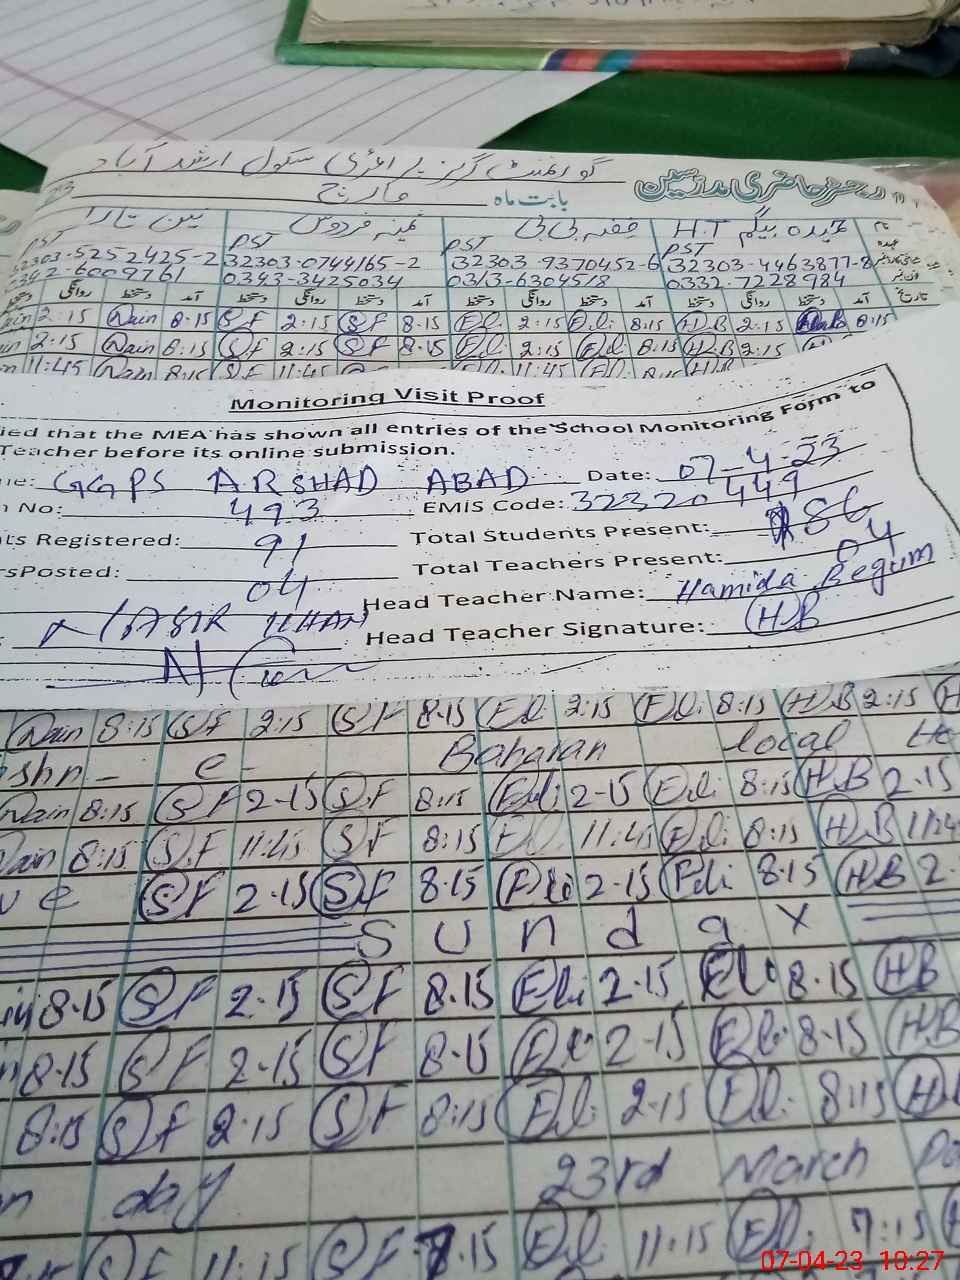 گورنمنٹ گرلز پرائمری سکول ارشد آباد
رجسٹر حاضری مدرسین
بابت ماہ مارچ
حمیدہ بیگم H.T حفصہ بی بی ثمینہ فردوس نین تارا
PST PST PST PST
32303-5252425-2 32303-0744165-2 32303-9370452-6 32303-4463877-8
342-6009761 0343-3425034 0313-6304518 0332-7228984
تاریخ آمد دستخط روانگی دستخط آمد دستخط روانگی دستخط آمد دستخط روانگی دستخط آمد دستخط روانگی دستخط
2:15 Nain 8:15 S F 2:15 S F 8:15 El. 2:15 El. 8:15 H.B 2:15 H.B 8:15
2:15 Nain 8:15 S F 2:15 S F 8:15 El 2:15 El 8:15 H.B 2:15
11:45 Nain 8:15 S F 11:45 11:45
Monitoring Visit Proof
ied that the MEA has shown all entries of the School Monitoring Form to
Teacher before its online submission.
GGPS ARSHAD ABAD Date: 07-4-23
No: 493 EMIS Code: 32320449
ts Registered: 91 Total Students Present: 86
rsPosted: 04 Total Teachers Present: 04
Head Teacher Name: Hamida Begum
NASIR KHAN Head Teacher Signature: H.B
Nain 8:15 S F 2:15 S F 8:15 El. 2:15 El. 8:15 H.B 2:15
shn - e - Baharan local
Nain 8:15 S F 2-15 S F 8:15 El. 2-15 El. 8:15 H.B 2.15
8:15 S.F 11:45 S F 8:15 11:45 El. 8:15 H.B
S F 2-15 S F 8.15 2-15 8.15 H.B 2.
Sunday
8.15 S F 2.15 S F 8.15 El. 2.15 El. 8.15 H.B
8.15 S F 2.15 S F 8.15 El. 2-15 El. 8.15 H.B
8:15 S F 2.15 S F 8:15 El. 2.15 El. 8:15
day 23rd March
S F 11:15 S F 7.15 El. 11:15 El. 7:15
07-04-23 10:27